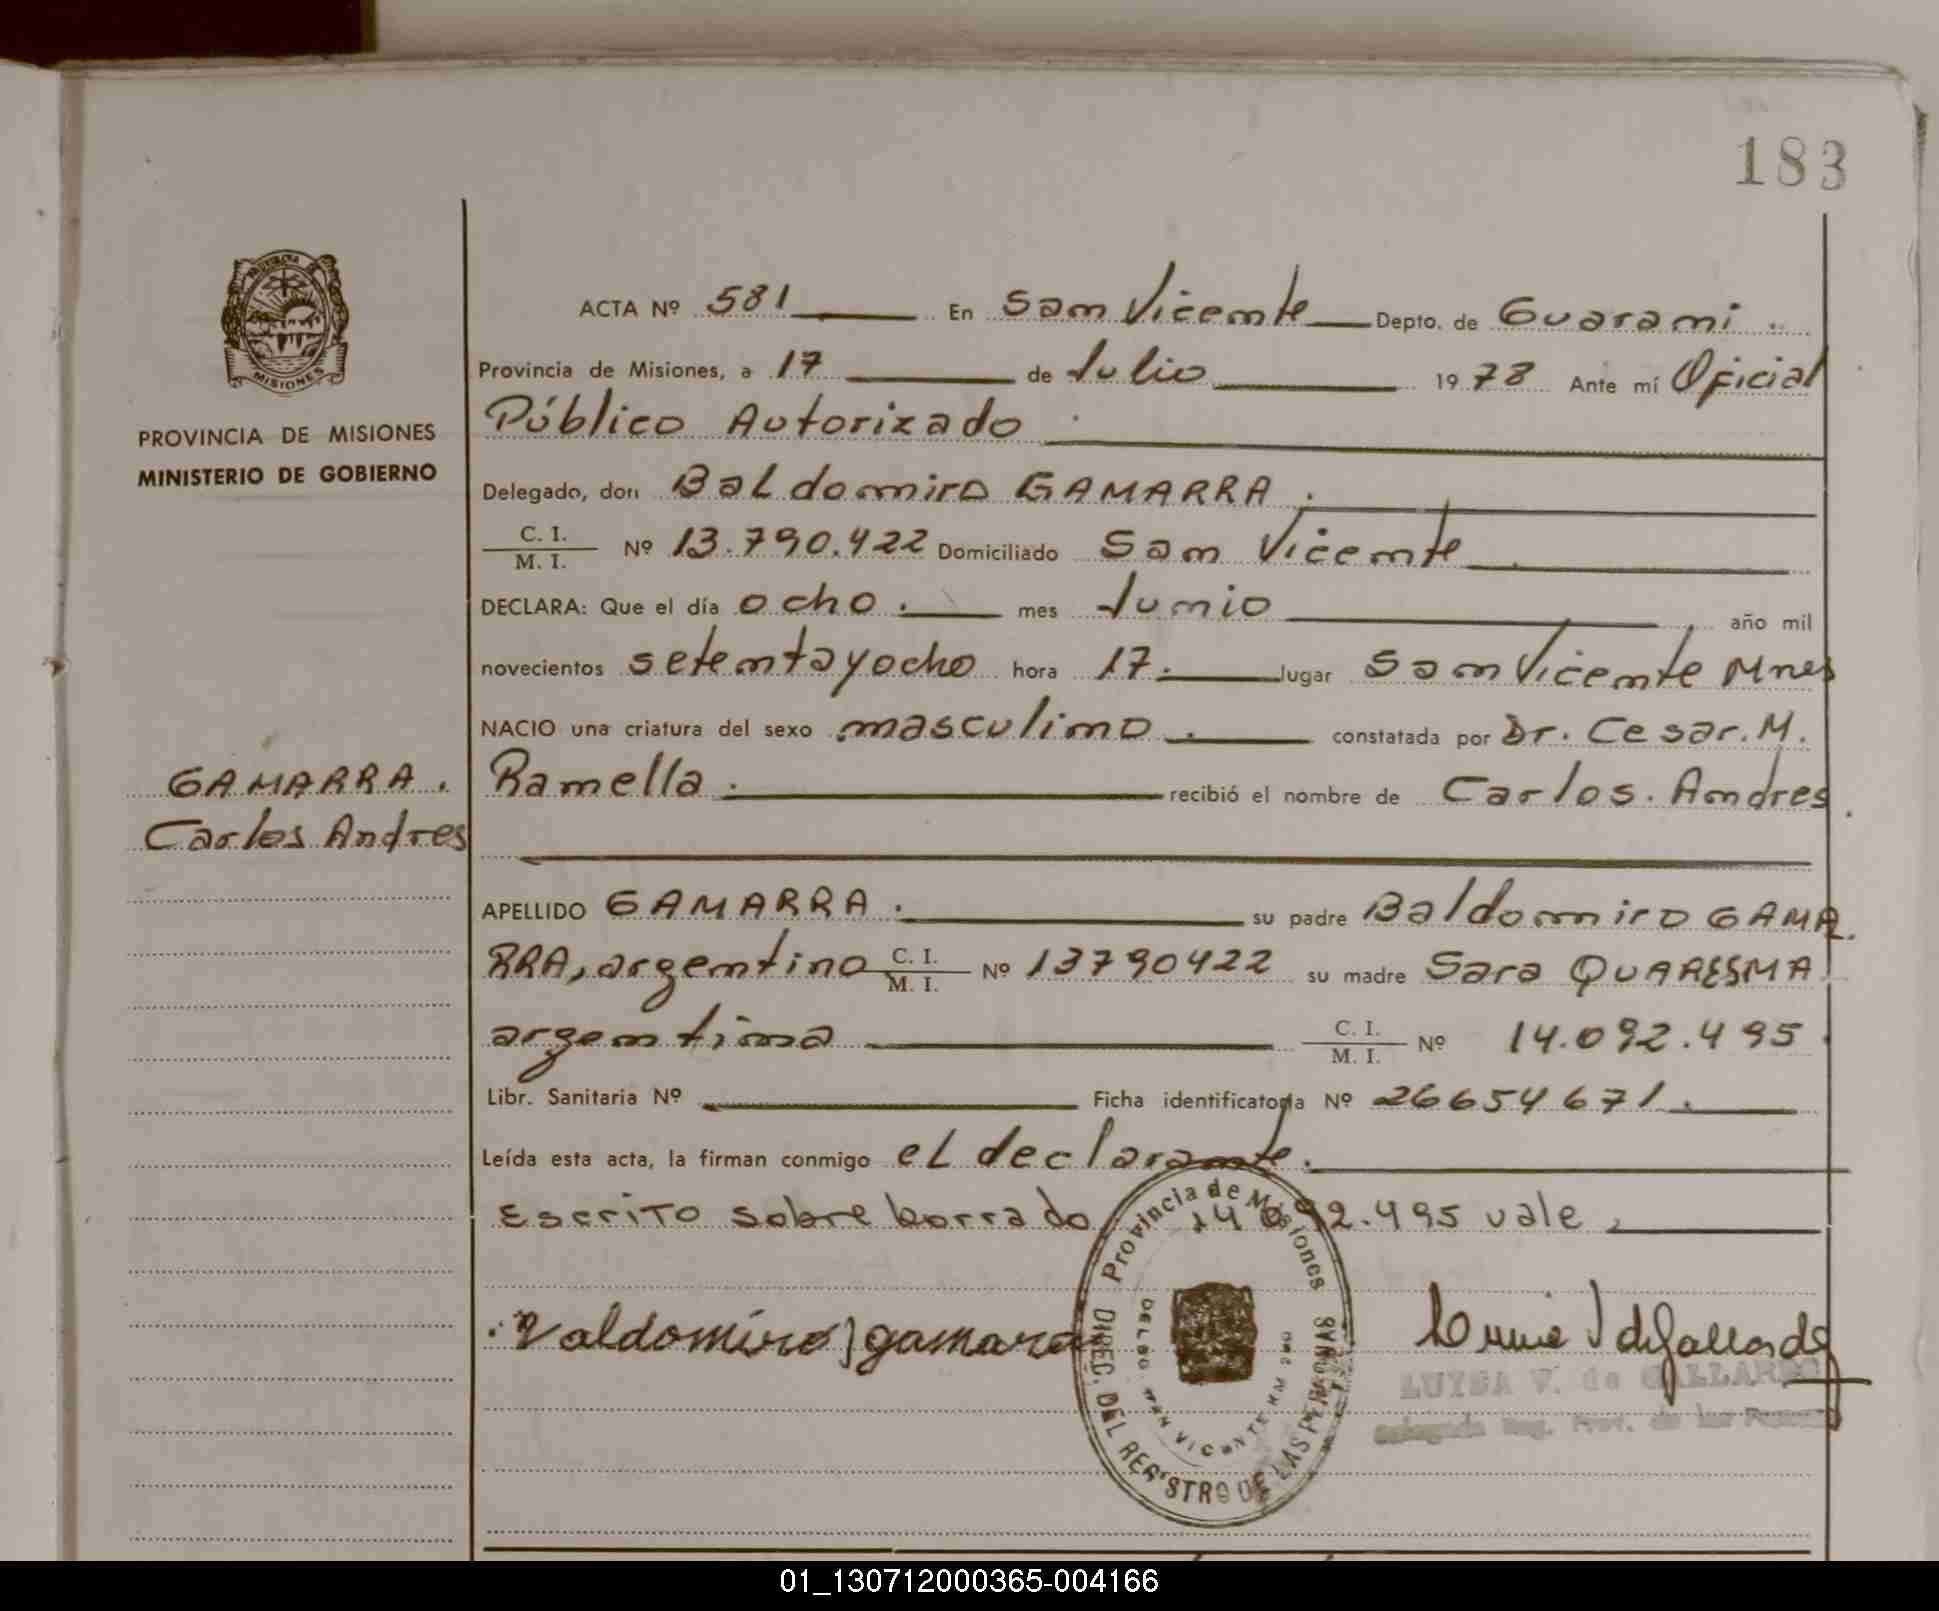 183
PROVINCIA
MISIONES
PROVINCIA DE MISIONES
MINISTERIO DE GOBIERNO
GAMARRA.
Carlos Andres
ACTA Nº 581 En San Vicente Depto. de Guarani
Provincia de Misiones, a 17 de Julio 1978 Ante mí Oficial
Público Autorizado
Delegado, don Baldomiro GAMARRA.
C. I. / M. I. Nº 13.790.422 Domiciliado San Vicente
DECLARA: Que el día ocho. mes Junio año mil
novecientos setentayocho hora 17. lugar San Vicente Mnes
NACIO una criatura del sexo masculino. constatada por Dr. Cesar. M.
Ramella. recibió el nombre de Carlos. Andres
APELLIDO GAMARRA. su padre Baldomiro GAMA
RRA, argentino C. I. / M. I. Nº 13790422 su madre Sara QUARESMA
argentina C. I. / M. I. Nº 14.092.495
Libr. Sanitaria Nº Ficha identificatoria Nº 26654671.
Leída esta acta, la firman conmigo el declarante.
Escrito sobre borrado 14 092.495 vale
Valdomiro J gamarra
Provincia de Misiones
DIREC. DEL REGISTRO DE LAS PERSONAS
SAN VICENTE
LUISA V. de GALLARDO
01_130712000365-004166